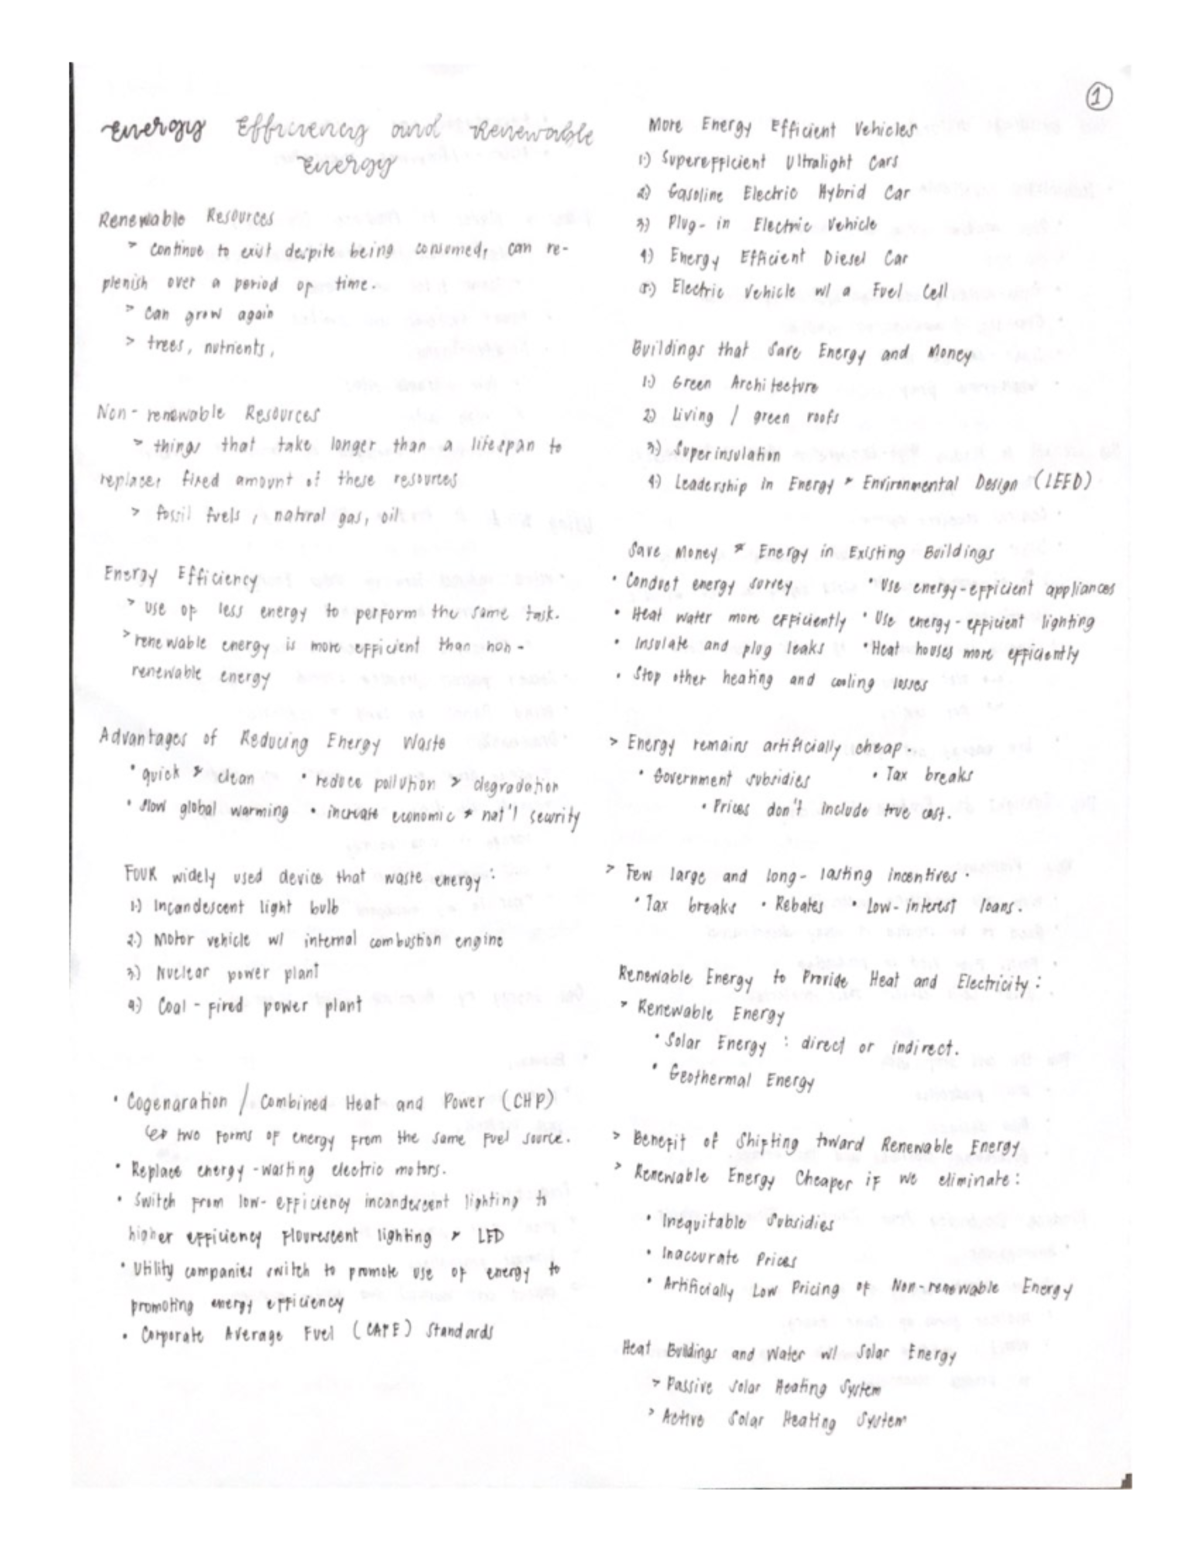 Energy Efficiency and Renewable
Energy
Renewable Resources
> continue to exist despite being consumed, can re-
plenish over a period of time.
> can grow again
> trees, nutrients,
Non-renewable Resources
> things that take longer than a lifespan to
replace, fixed amount of these resources
> fossil fuels, natural gas, oil
Energy Efficiency
> use of less energy to perform the same task.
> renewable energy is more efficient than non-
renewable energy
Advantages of Reducing Energy Waste
• quick & clean • reduce pollution & degradation
• slow global warming • increase economic & nat'l security
FOUR widely used device that waste energy:
1.) Incandescent light bulb
2.) Motor vehicle w/ internal combustion engine
3.) Nuclear power plant
4.) Coal-fired power plant
• Cogenaration / Combined Heat and Power (CHP)
↳ two forms of energy from the same fuel source.
• Replace energy-wasting electric motors.
• Switch from low-efficiency incandescent lighting to
higher efficiency flourescent lighting & LED
• Utility companies switch to promote use of energy to
promoting energy efficiency
• Corporate Average Fuel (CAFE) Standards
1
More Energy Efficient Vehicles
1.) Superefficient Ultralight Cars
2.) Gasoline Electric Hybrid Car
3.) Plug-in Electric Vehicle
4.) Energy Efficient Diesel Car
5.) Electric Vehicle w/ a Fuel Cell
Buildings that Save Energy and Money
1.) Green Architecture
2.) Living / green roofs
3.) Superinsulation
4.) Leadership in Energy & Environmental Design (LEED)
Save Money & Energy in Existing Buildings
• Conduct energy survey • Use energy-efficient appliances
• Heat water more efficiently • Use energy-efficient lighting
• Insulate and plug leaks • Heat houses more efficiently
• Stop other heating and cooling losses
> Energy remains artificially cheap.
• Government subsidies • Tax breaks
• Prices don't include true cost.
> Few large and long-lasting incentives.
• Tax breaks • Rebates • Low-interest loans.
Renewable Energy to Provide Heat and Electricity:
> Renewable Energy
• Solar Energy : direct or indirect.
• Geothermal Energy
> Benefit of Shifting toward Renewable Energy
> Renewable Energy Cheaper if we eliminate:
• Inequitable Subsidies
• Inaccurate Prices
• Artificially Low Pricing of Non-renewable Energy
Heat Buildings and Water w/ Solar Energy
> Passive Solar Heating System
> Active Solar Heating System